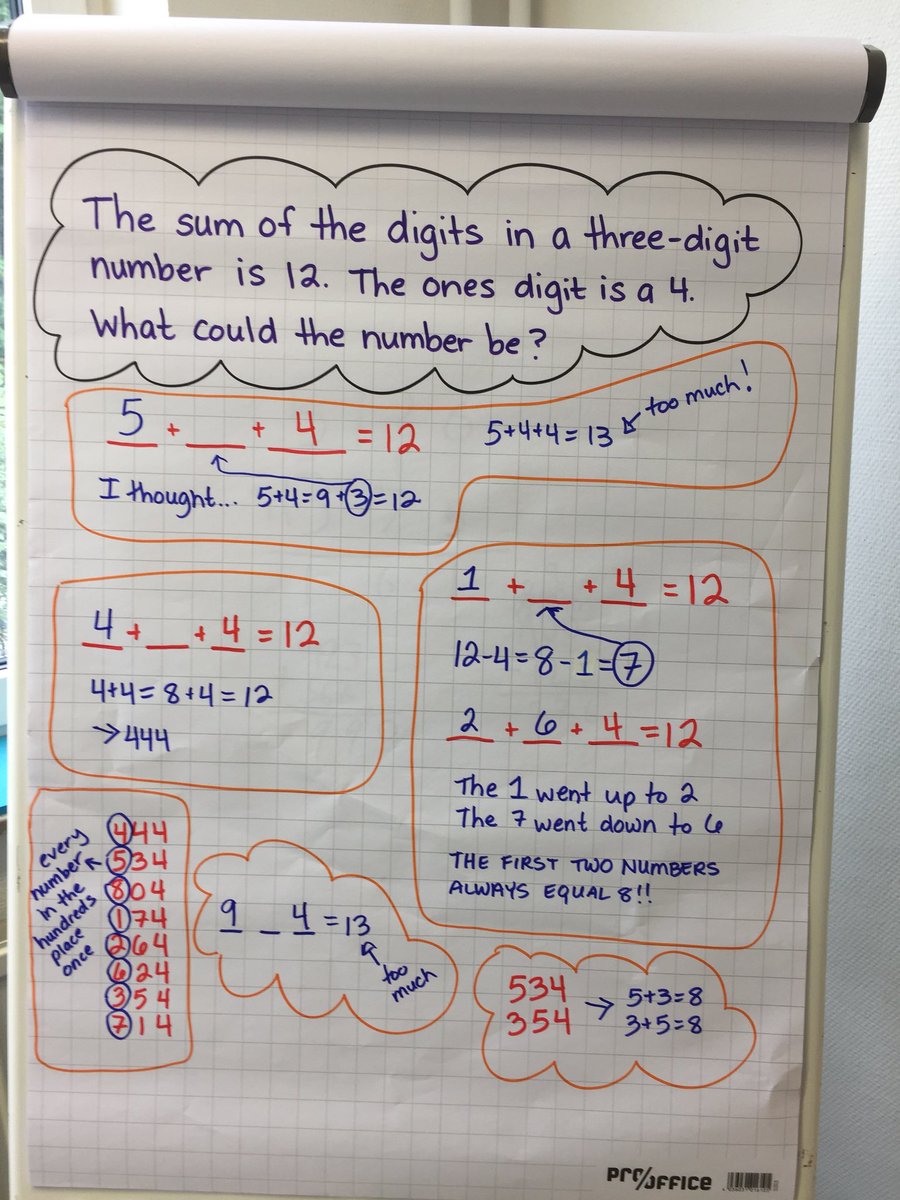 The sum of the digits in a three-digit
number is 12. The ones digit is a 4.
What could the number be?
5 + __ + 4 = 12
5+4+4=13
too much!
I thought... 5+4=9+3=12
4 + __ + 4 = 12
4+4=8+4=12
→444
1 + __ + 4 = 12
12-4=8-1=7
2 + 6 + 4 = 12
The 1 went up to 2
The 7 went down to 6
THE FIRST TWO NUMBERS
ALWAYS EQUAL 8!!
every
number
in the
hundreds
place
once
444
534
804
174
264
624
354
714
9 _ 4 = 13
too
much
534 → 5+3=8
354 3+5=8
pro/office